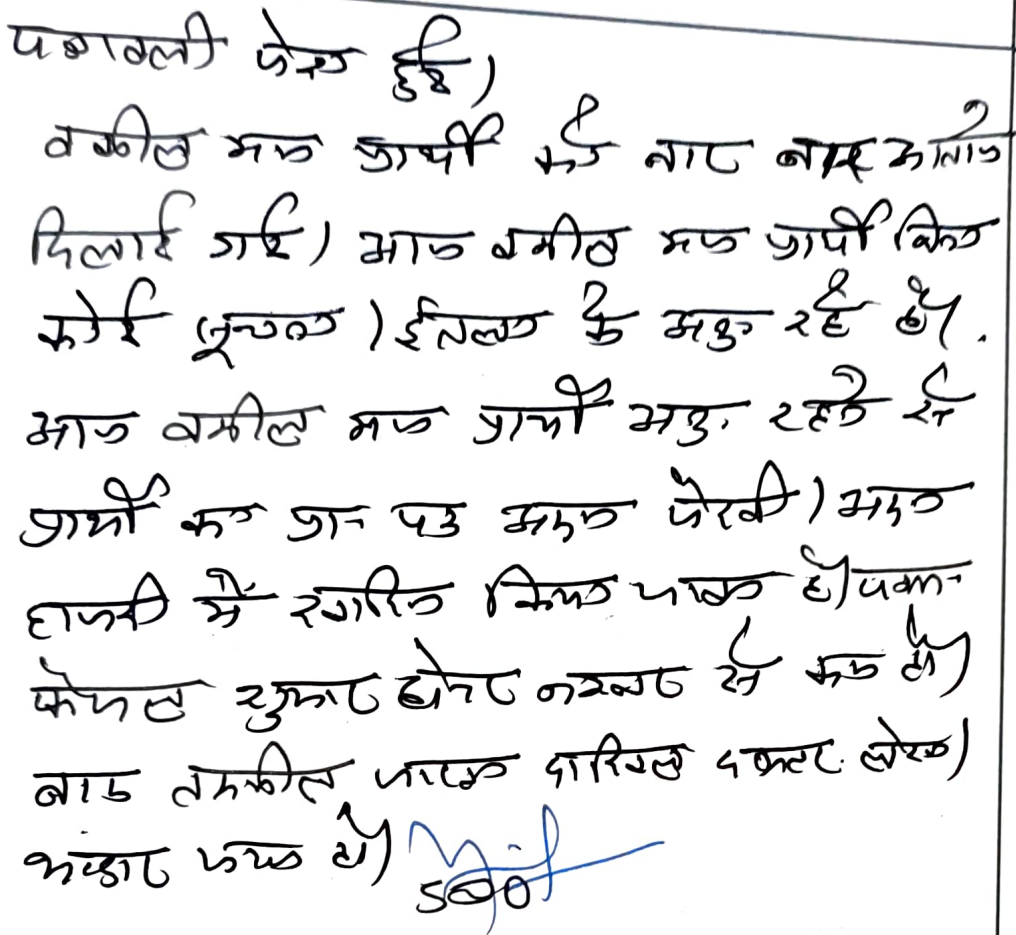 पत्रावली पेश हुई।
वकील मय प्रार्थी को बार बार आवाज
दिलाई गई। आज वकील मय प्रार्थी बिना
कोई सूचना / ईतला के अनु रहे है।
आज वकील मय प्रार्थी अनु. रहने से
प्रार्थी का प्रा- पत्र अदम पैरवी / अदम
हाजरी में खारिज किया जाता है। पत्रा-
फैसल शुमार होकर नम्बर से कम हो।
बाद तकमील जाप्ता दाखिल दफ्तर लेख।
भण्डार जमा हो।
SDO